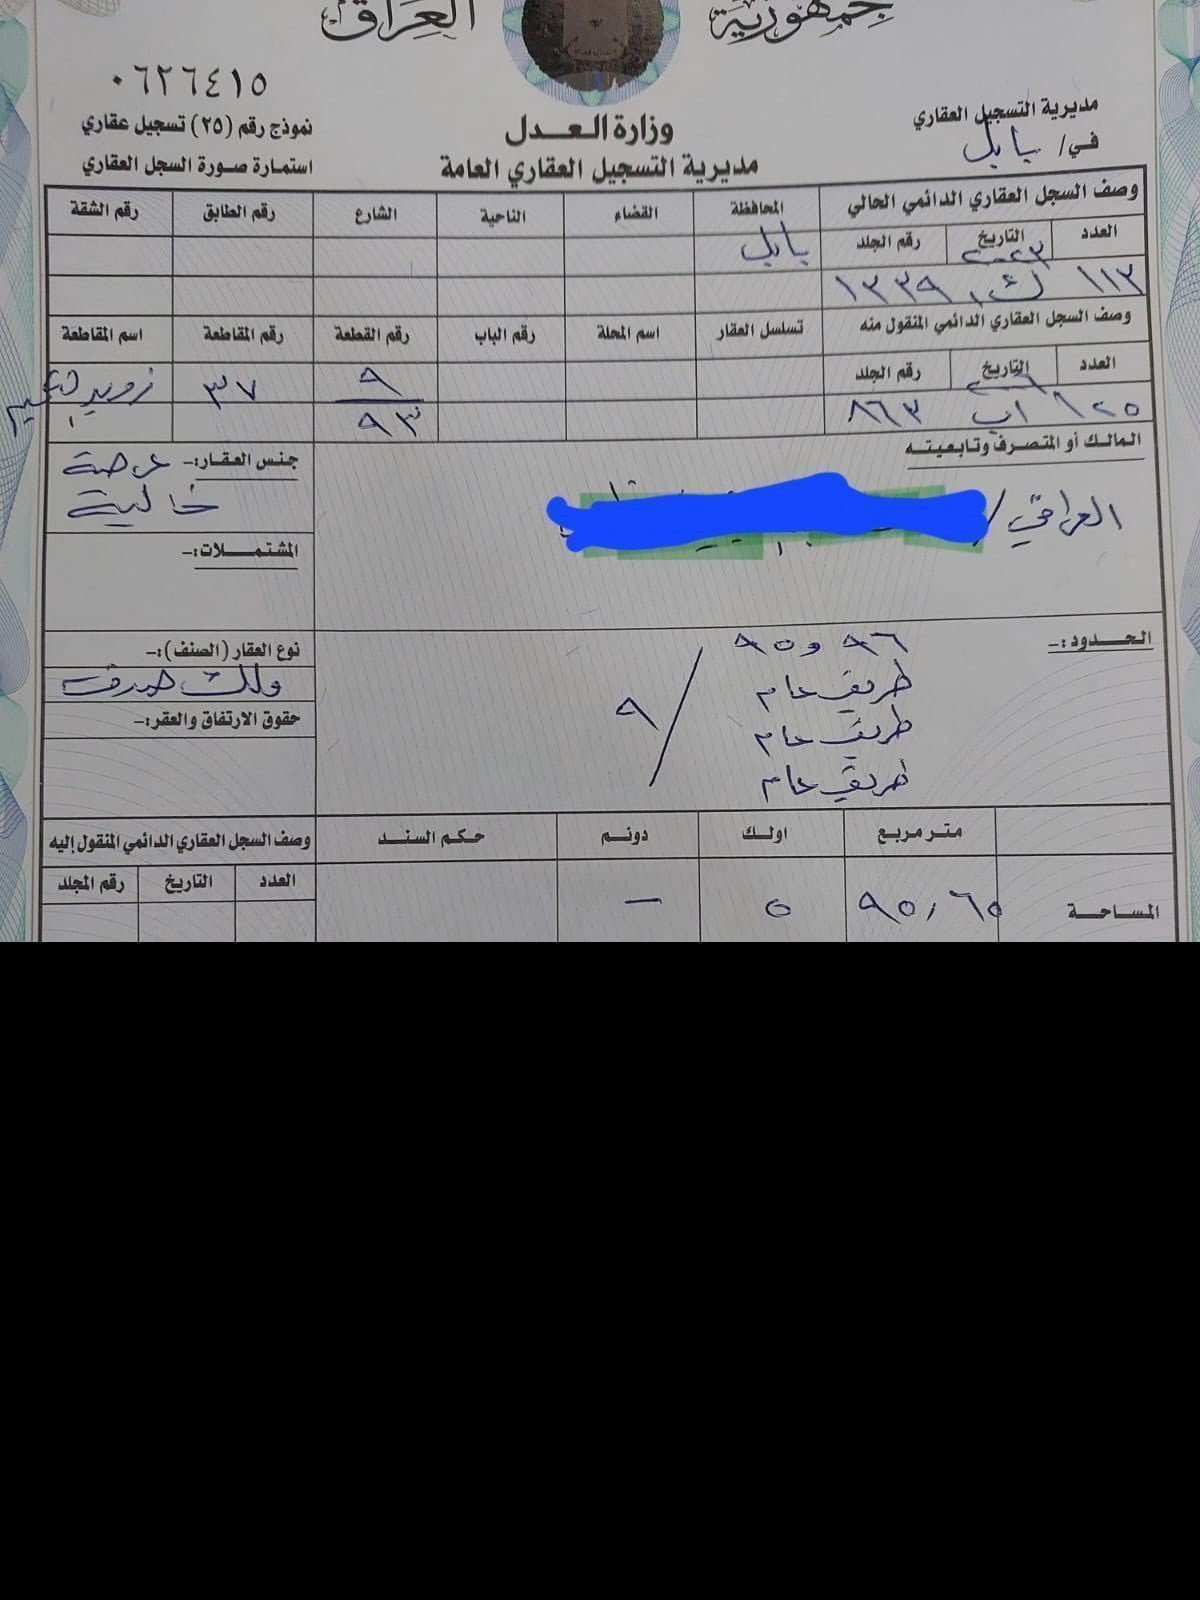 جمهورية العراق
٠٦٢٦٤١٥
مديرية التسجيل العقاري
في/ بابل
وزارة العدل
مديرية التسجيل العقاري العامة
نموذج رقم (٢٥) تسجيل عقاري
استمارة صورة السجل العقاري
وصف السجل العقاري الدائمي الحالي
العدد التاريخ رقم الجلد
٢٠٢٣
١١٣ ك١ ١٣٣٩
المحافظة القضاء الناحية الشارع رقم الطابق رقم الشقة
بابل
وصف السجل العقاري الدائمي المنقول منه
العدد التاريخ رقم الجلد
٦٢٥ اب ٨٦٣
تسلسل العقار اسم المحلة رقم الباب رقم القطعة رقم المقاطعة اسم المقاطعة
٩
٩٣
٣٧
المالك أو المتصرف وتابعيته
العراقي /
جنس العقار:- عرصة
خالية
المشتملات:-
الحدود:-
٩٦ و ٩٥
طريق عام
طريق عام
طريق عام
/ ٩
نوع العقار (الصنف):-
ملك صرف
حقوق الارتفاق والعقر:-
متر مربع اولك دونم حكم السند
المساحة ٩٥,٦٥ ٥ -
وصف السجل العقاري الدائمي المنقول إليه
العدد التاريخ رقم المجلد